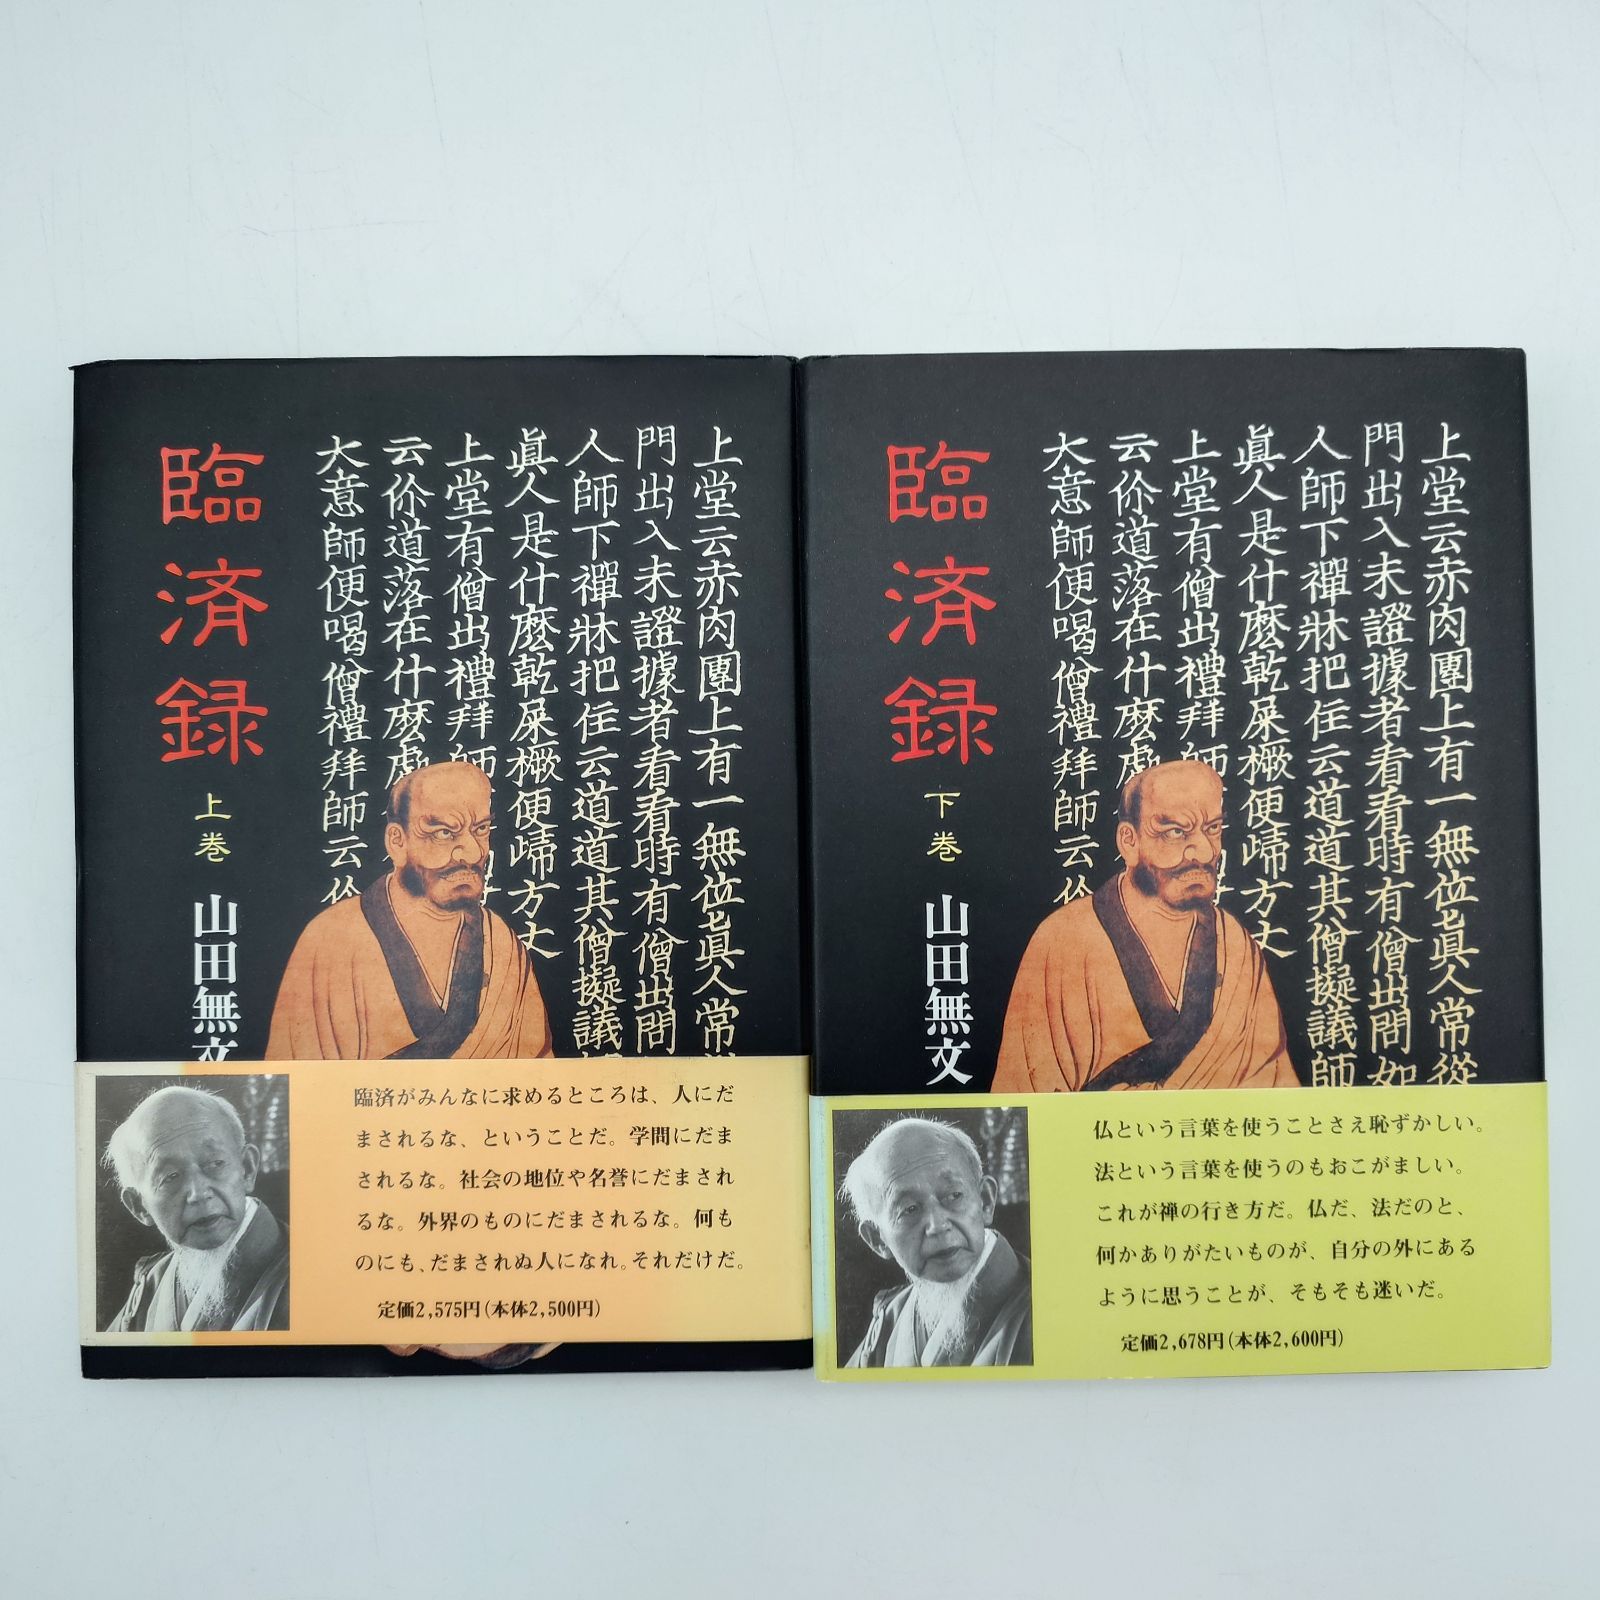 臨済録
上巻
山田無文
上堂云赤肉團上有一無位真人常
門出入未證據者看看時有僧出問
人師下禪牀把住云道道其僧擬議
眞人是什麼乾屎橛便歸方丈
上堂有僧出禮拜師
云伱道落在什麼處
大意師便喝僧禮拜師云伱
臨済がみんなに求めるところは、人にだ
まされるな、ということだ。学問にだま
されるな。社会の地位や名誉にだまされ
るな。外界のものにだまされるな。何も
のにも、だまされぬ人になれ。それだけだ。
定価2,575円(本体2,500円)
臨済録
下巻
山田無文
上堂云赤肉團上有一無位真人常從
門出入未證據者看看時有僧出問如
人師下禪牀把住云道道其僧擬議師
眞人是什麼乾屎橛便歸方丈
上堂有僧出禮拜師
云伱道落在什麼處
大意師便喝僧禮拜師云伱
仏という言葉を使うことさえ恥ずかしい。
法という言葉を使うのもおこがましい。
これが禅の行き方だ。仏だ、法だのと、
何かありがたいものが、自分の外にある
ように思うことが、そもそも迷いだ。
定価2,678円(本体2,600円)